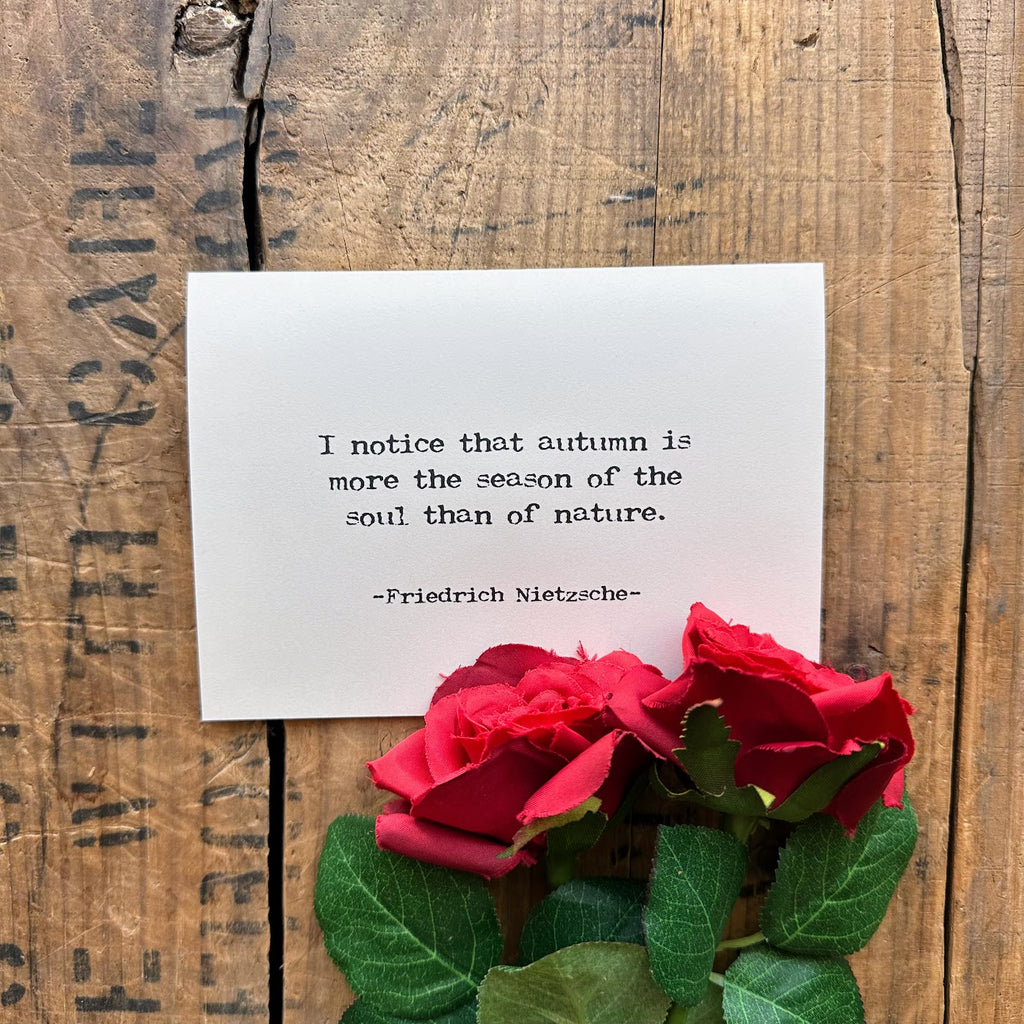 I notice that autumn is
more the season of the
soul than of nature.
-Friedrich Nietzsche-